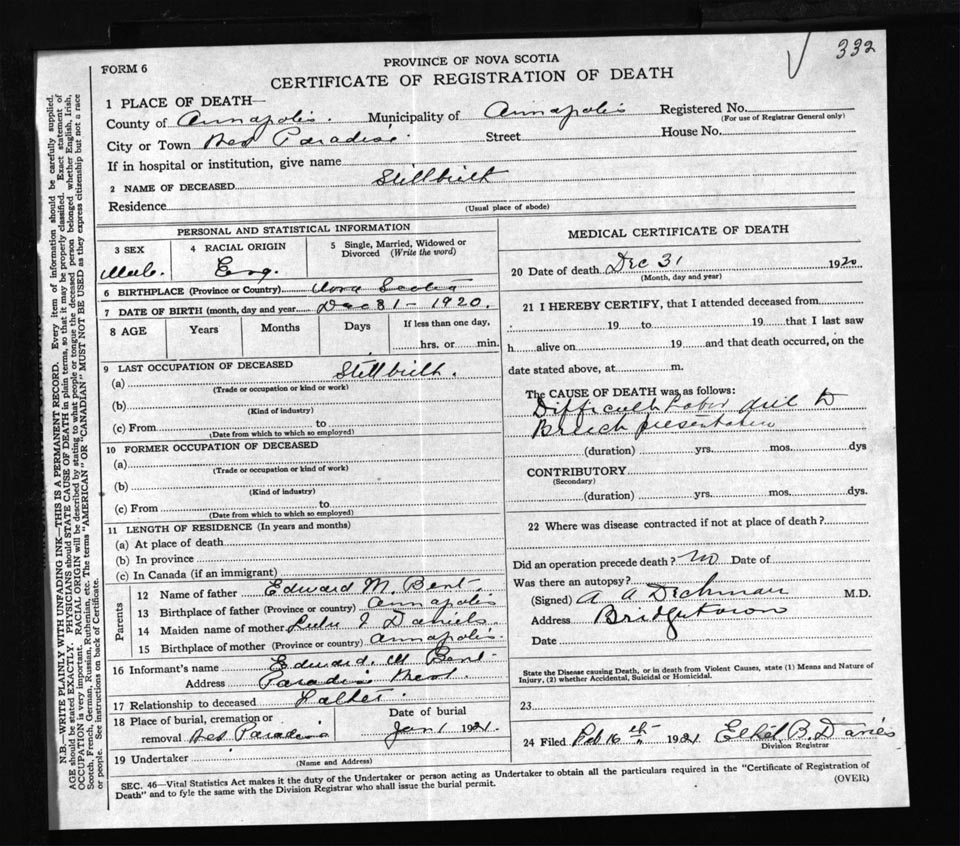 332
FORM 6
PROVINCE OF NOVA SCOTIA
CERTIFICATE OF REGISTRATION OF DEATH
1 PLACE OF DEATH—
County of Annapolis. Municipality of Annapolis Registered No.
(For use of Registrar General only)
City or Town Paradise Street House No.
If in hospital or institution, give name
2 NAME OF DECEASED Stillbirth
Residence
(Usual place of abode)
PERSONAL AND STATISTICAL INFORMATION
3 SEX 4 RACIAL ORIGIN 5 Single, Married, Widowed or
Divorced (Write the word)
Male. Eng.
6 BIRTHPLACE (Province or Country) Nova Scotia
7 DATE OF BIRTH (month, day and year Dec 31 - 1920.
8 AGE Years Months Days If less than one day,
hrs. or min.
9 LAST OCCUPATION OF DECEASED Stillbirth.
(a)
(Trade or occupation or kind or work)
(b)
(Kind of industry)
(c) From to
(Date from which to which so employed)
10 FORMER OCCUPATION OF DECEASED
(a)
(Trade or occupation or kind of work)
(b)
(Kind of industry)
(c) From to
(Date from which to which so employed)
11 LENGTH OF RESIDENCE (In years and months)
(a) At place of death
(b) In province
(c) In Canada (if an immigrant)
Parents
12 Name of father Edward M. Bent.
13 Birthplace of father (Province or country) Annapolis
14 Maiden name of mother Lulu Daniels
15 Birthplace of mother (Province or country) Annapolis.
16 Informant's name Edward. M Bent-
Address Paradise West.
17 Relationship to deceased Father.
18 Place of burial, cremation or Date of burial
removal Paradise Jan 1 1921
19 Undertaker
(Name and Address)
MEDICAL CERTIFICATE OF DEATH
20 Date of death Dec 31 1920
(Month, day and year)
21 I HEREBY CERTIFY, that I attended deceased from
19 to 19 that I last saw
h alive on 19 and that death occurred, on the
date stated above, at m.
The CAUSE OF DEATH was as follows:
Difficult labor due to
Breech presentation
(duration) yrs. mos. dys
CONTRIBUTORY
(Secondary)
(duration) yrs. mos. dys.
22 Where was disease contracted if not at place of death?
Did an operation precede death? no Date of
Was there an autopsy?
(Signed) A A Dechman M.D.
Address Bridgetown
Date
State the Disease causing Death, or in death from Violent Causes, state (1) Means and Nature of
Injury, (2) whether Accidental, Suicidal or Homicidal.
23
24 Filed Feb 16th 1921 Ethel B. Daniels
Division Registrar
SEC. 46—Vital Statistics Act makes it the duty of the Undertaker or person acting as Undertaker to obtain all the particulars required in the "Certificate of Registration of
Death" and to fyle the same with the Division Registrar who shall issue the burial permit.
(OVER)
N.B.—WRITE PLAINLY WITH UNFADING INK—THIS IS A PERMANENT RECORD. Every item of information should be carefully supplied.
AGE should be stated EXACTLY. PHYSICIANS should STATE CAUSE OF DEATH in plain terms, so that it may be properly classified. Exact statement of
OCCUPATION is very important. RACIAL ORIGIN will be described by stating to what people or tongue the deceased person belonged whether English, Irish,
Scotch, French, German, Russian, Ruthenian, etc. The terms "AMERICAN" OR "CANADIAN" MUST NOT BE USED as they express citizenship but not a race
or people. See instructions on back of Certificate.